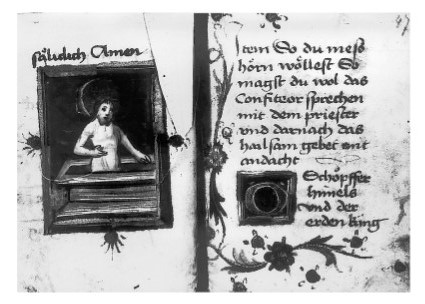 säliclich Amen
Item So du mess
hörn wöllest So
magst du wol das
Confiteor sprechen
mit dem priester
vnd darnach das
hailsam gebet mit
andacht
O Schöpffer
himels
vnd der
erden king